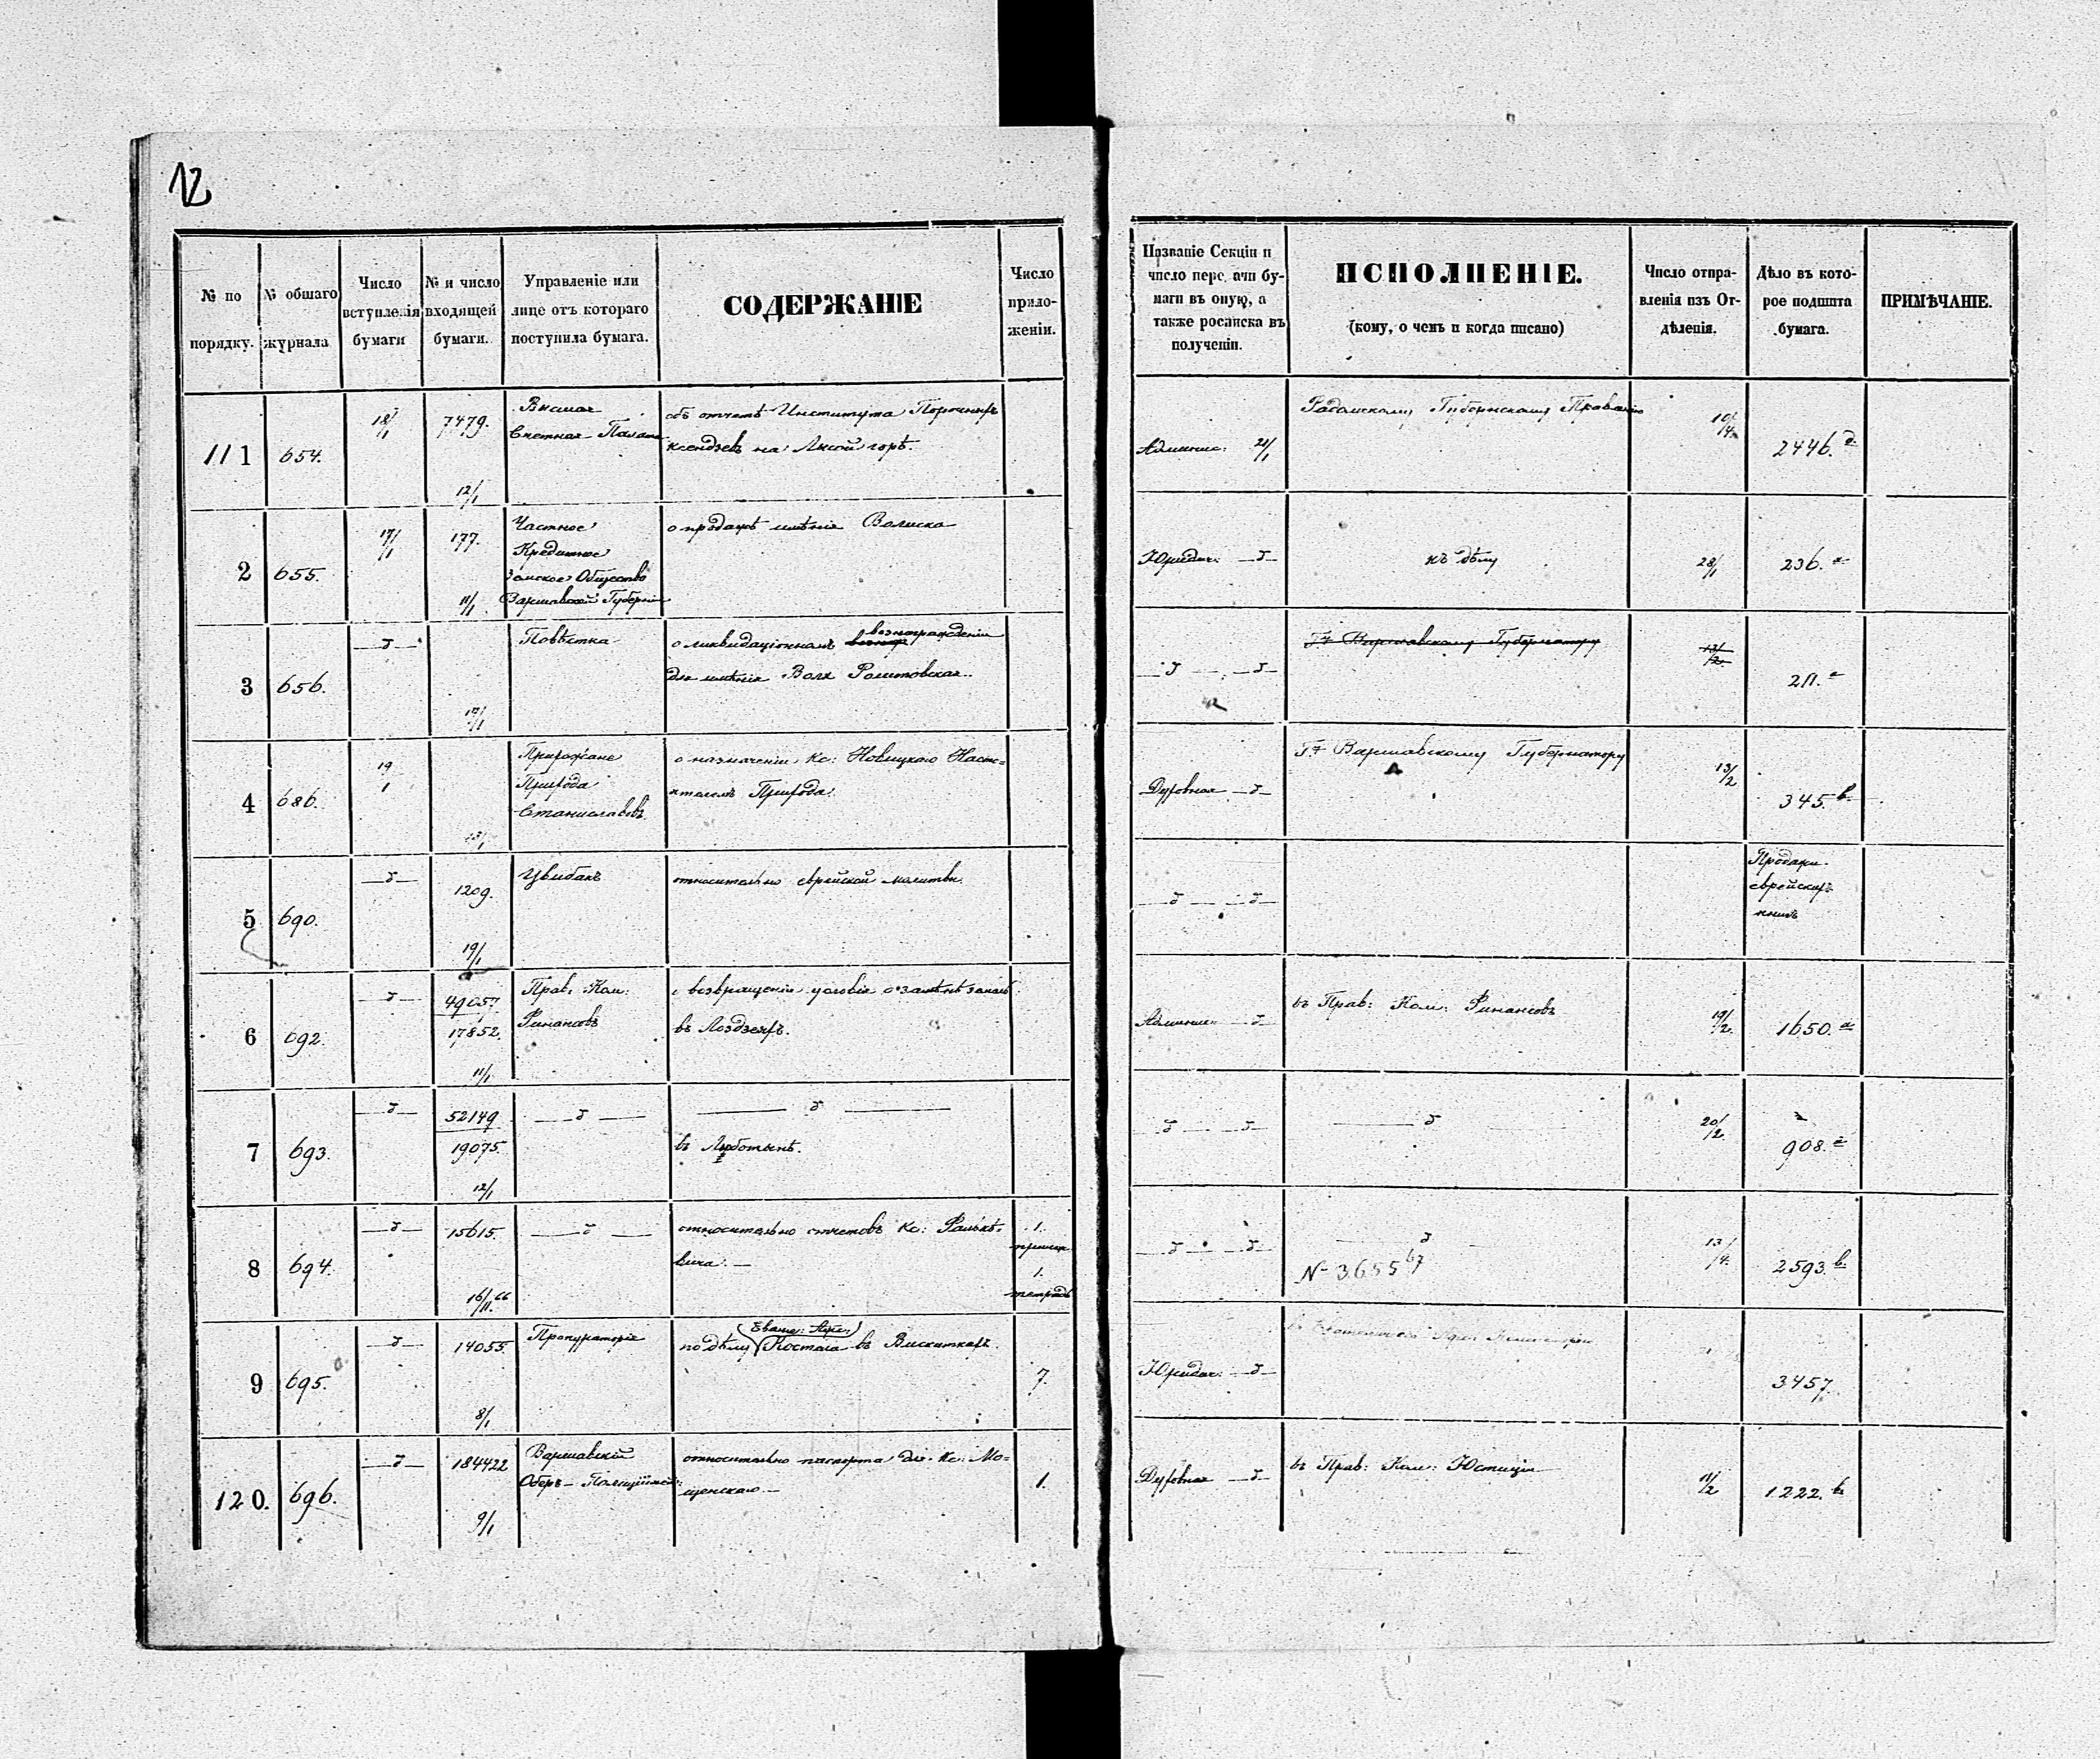 12
№ по порядку.
№ общаго журнала
Число вступленія бумаги
№ и число входящей бумаги.
Управленіе или лице отъ котораго поступила бумага.
СОДЕРЖАНІЕ
Число приложеніи.
Названіе Секціи и число пере. ачи бумаги въ оную, а также росписка въ полученіи.
ИСПОЛНЕНІЕ.
(кому, о чемъ и когда писано)
Число отправленія изъ Отдѣленія.
Дѣло въ которое подшита бумага.
ПРИМѢЧАНІЕ.
111 654. 18/1 7479. 12/1
Высшая
Счетная Палата
объ отчетѣ Института Порочныхъ
ксендзевъ на Лысой горѣ.
Админис: 21/1
Радомскому Губернскому Правленію
10/4.
2446.
2 655. 17/1 177. 11/1
Частное
Кредитное
Земское Общество
Варшавской Губерніи
о продажѣ имѣнія Волиска
Юридич. д
къ дѣлу
28/1
236. а
3 656. д 17/1
Повѣстка
о ликвидаціонномъ вознагражденіи
для имѣнія Воля
д д
Гу Варшавскому Губернатору
13/2.
4 686. 19/1
Прихожане
Прихода
Станиславовъ
о назначеніи Кс: Новицкаго Насто=
ятелемъ Прихода.
Духовная д
Гу Варшавскому Губернатору
13/2
345. в
5 690. д 1209. 19/1
Цвибакъ
относительно еврейской молитвы.
д д
Продажи
еврейскихъ
книгъ
6 692. д 49057. 17852. 11/1
Прав. Ком:
Финансовъ
о возвращеніи условія о
въ Лоздзеяхъ.
Админис. д
въ Прав: Ком: Финансовъ
19/2.
1650. а
7 693. д 52149 19075. 12/1
д
д
въ
д д
д
20/2
908.
8 694. д 15615. 16/11. 66
д
относительно отчетовъ Кс: Фалькѣ=
вича.
1.
1.
тетрадь
д д
д
№ 3655 67
13/4.
2593. в.
9 695. д 14055 8/1
Прокураторія
по дѣлу Костела въ Вискиткахъ.
7.
Юридич. д
3457.
120. 696. д 184422 9/1
Варшавскій
Оберъ-Полиціймей:
относительно паспорта для Кс: Мо=
щенскаго.
1.
Духовная д
въ Прав: Ком: Юстиціи
11/2
1222. в